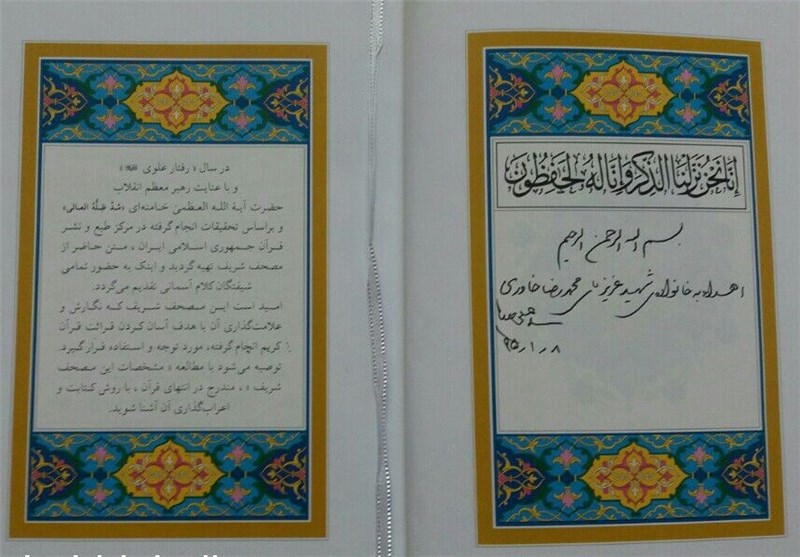 إِنَّا نَحْنُ نَزَّلْنَا الذِّكْرَ وَإِنَّا لَهُ لَحَٰفِظُونَ
بسم الله الرحمن الرحیم
اهداء به خانواده‌ی شهید عزیز آقای محمدرضا خاوری
۹۵/۱/۸
در سال « رفتار علوی »
و با عنایت رهبر معظم انقلاب
حضرت آیة الله العظمیٰ خامنه‌ای «مُدَّ ظِلُّهُ العالی»
و براساس تحقیقات انجام گرفته در مرکز طبع و نشر
قرآن جمهوری اسلامی ایران ، متن حاضر از
مصحف شریف تهیه گردید و اینک به حضور تمامی
شیفتگان کلام آسمانی تقدیم می‌گردد.
امید است این مصحف شریف که نگارش و
علامت‌گذاری آن با هدف آسان کردن قرائت قرآن
کریم انجام گرفته، مورد توجه و استفاده قرار گیرد.
توصیه می‌شود با مطالعه « مشخصات این مصحف
شریف » ، مندرج در انتهای قرآن ، با روش کتابت و
اعراب‌گذاری آن آشنا شوید.